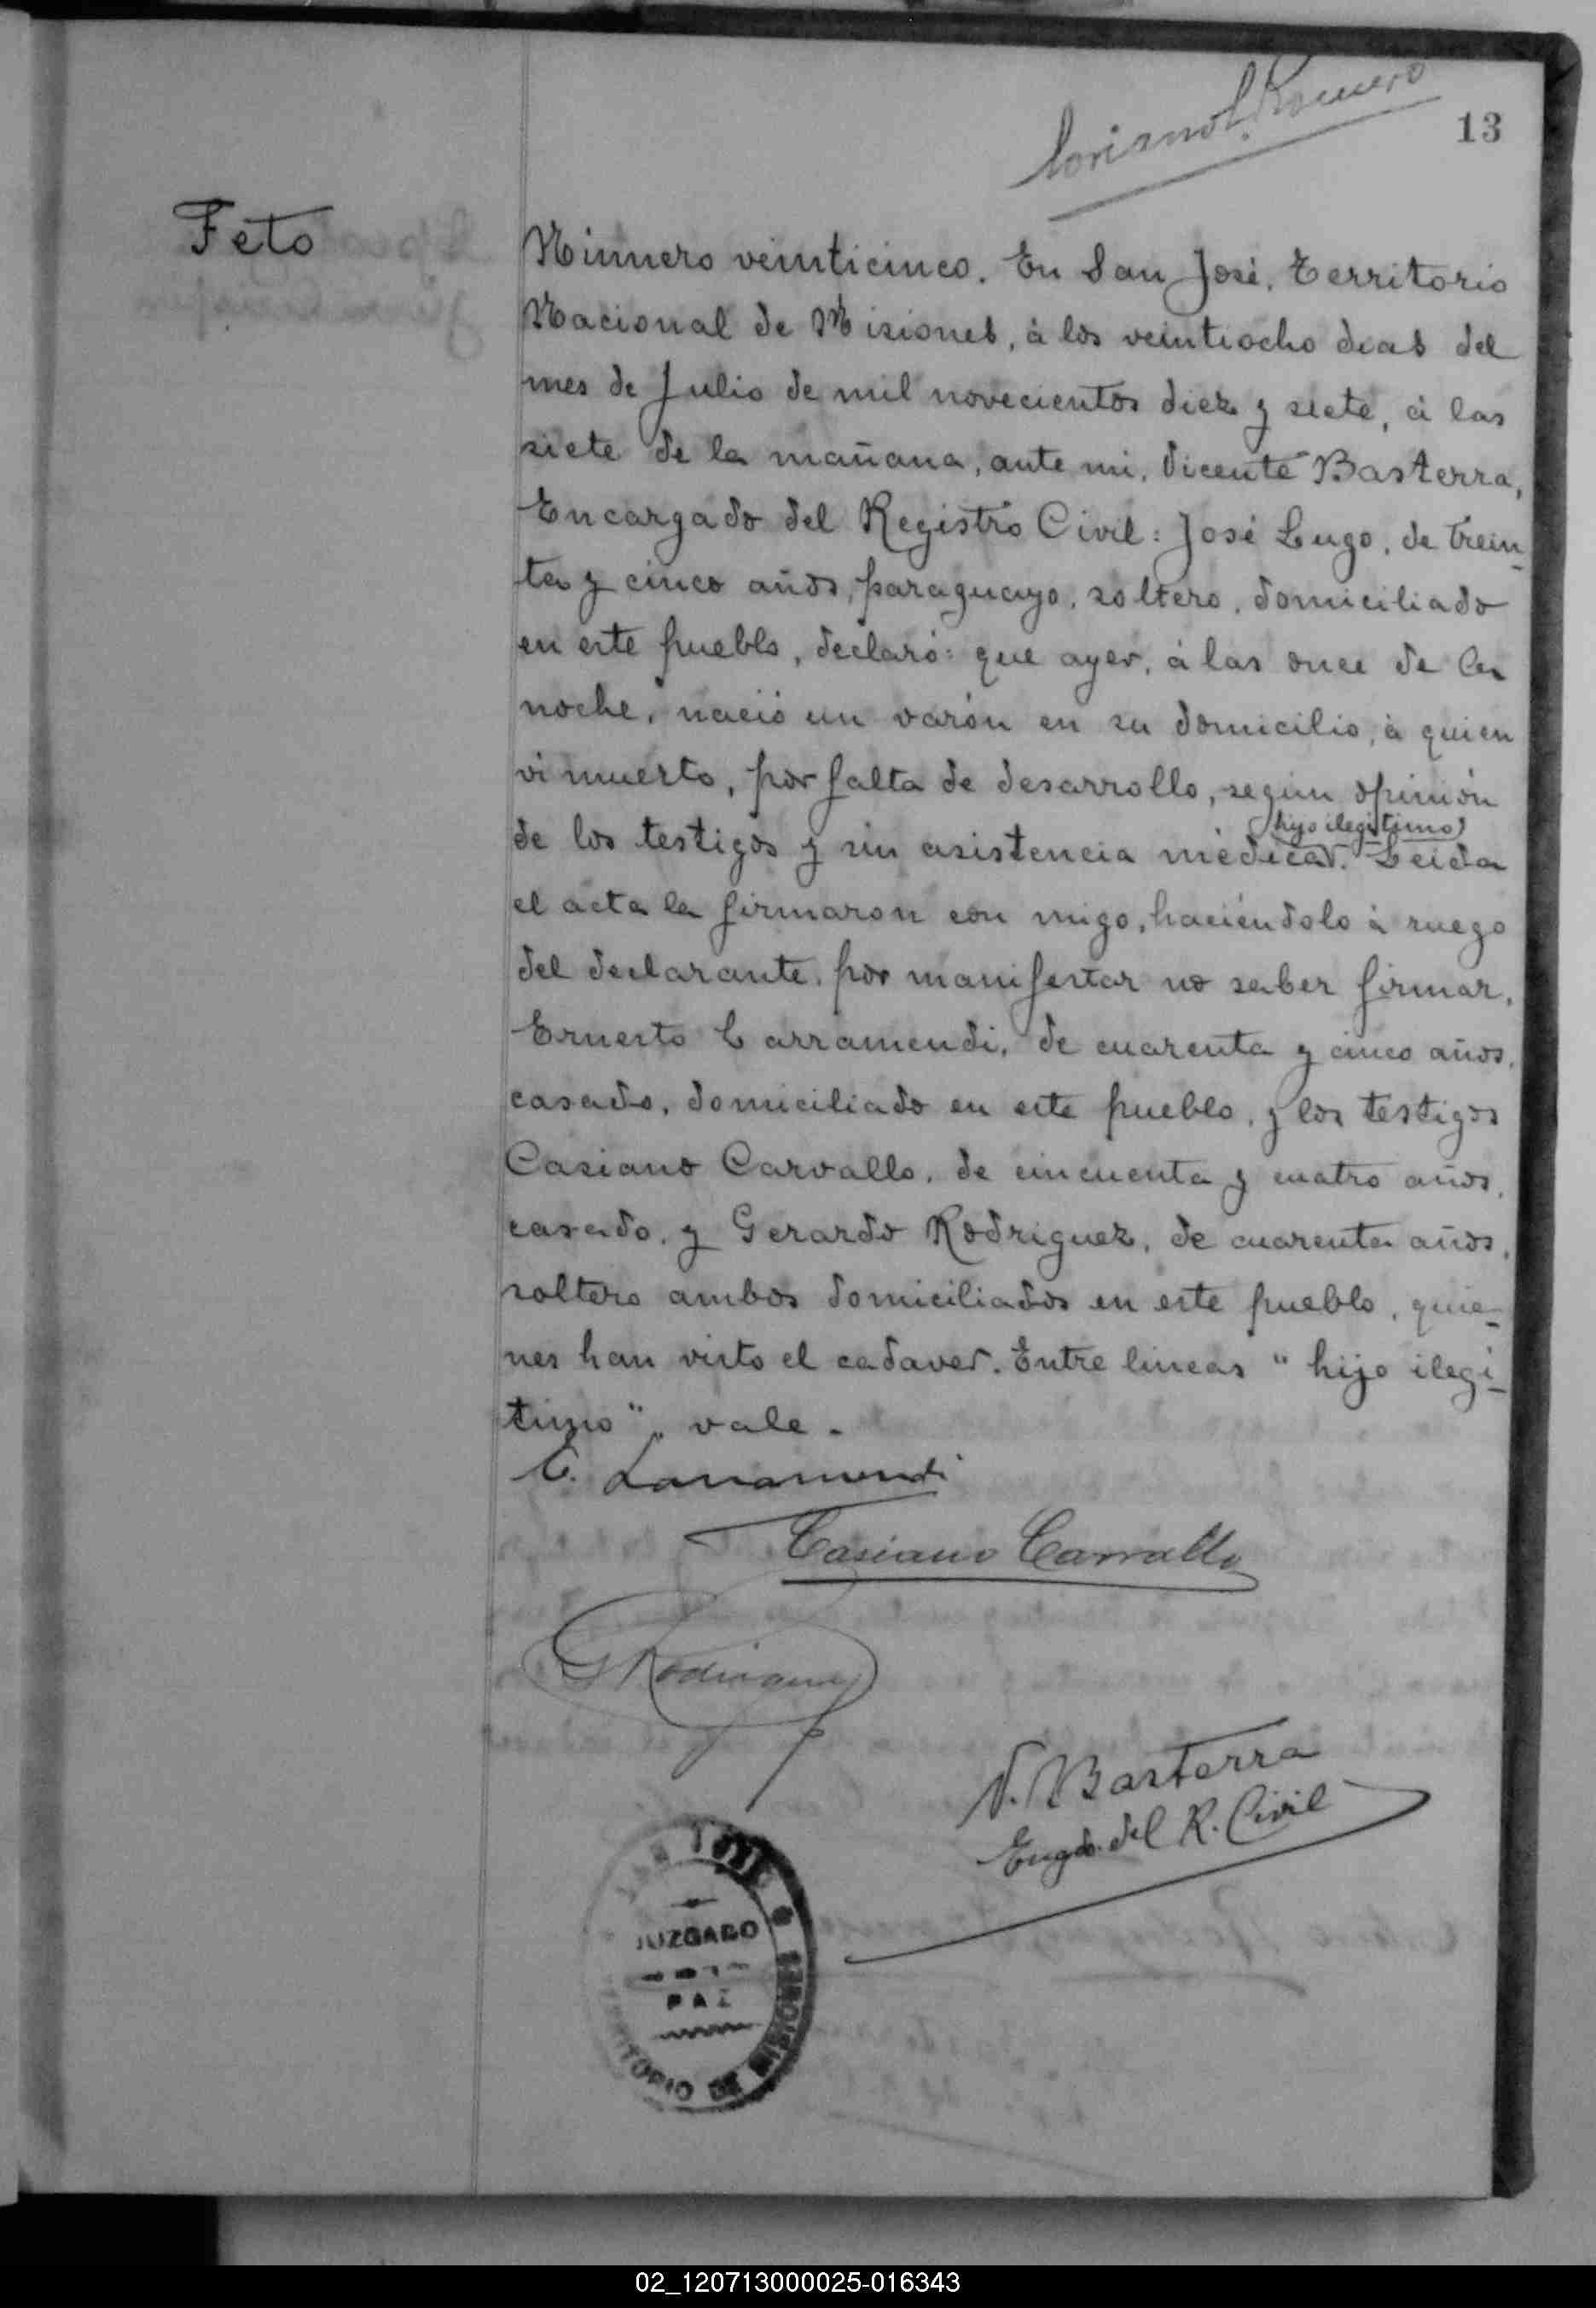 L. Romero
13
Feto
Número veinticinco. En San José, Territorio
Nacional de Misiones, á los veintiocho dias del
mes de Julio de mil novecientos diez y siete, á las
siete de la mañana, ante mi, Vicente Basterra,
Encargado del Registro Civil: José Lugo, de trein-
ta y cinco años, paraguayo, soltero, domiciliado
en este pueblo, declaró: que ayer, á las once de la
noche, nació un varón en su domicilio, á quien
vi muerto, por falta de desarrollo, según opinión
(hijo ilegitimo)
de los testigos y sin asistencia médica. Leida
el acta la firmaron con migo, haciéndolo á ruego
del declarante, por manifestar no saber firmar,
Ernesto Larramendi, de cuarenta y cinco años,
casado, domiciliado en este pueblo, y los testigos
Casiano Carvallo, de cincuenta y cuatro años,
casado, y Gerardo Rodriguez, de cuarenta años,
soltero ambos domiciliados en este pueblo, quie-
nes han visto el cadaver. Entre lineas "hijo ilegi-
timo", vale.
E. Larramendi
Casiano Carvallo
G Rodriguez
V. Basterra
Engdo. del R. Civil
SAN JOSE
JUZGADO
DE
PAZ
TERRITORIO DE MISIONES
02_120713000025-016343